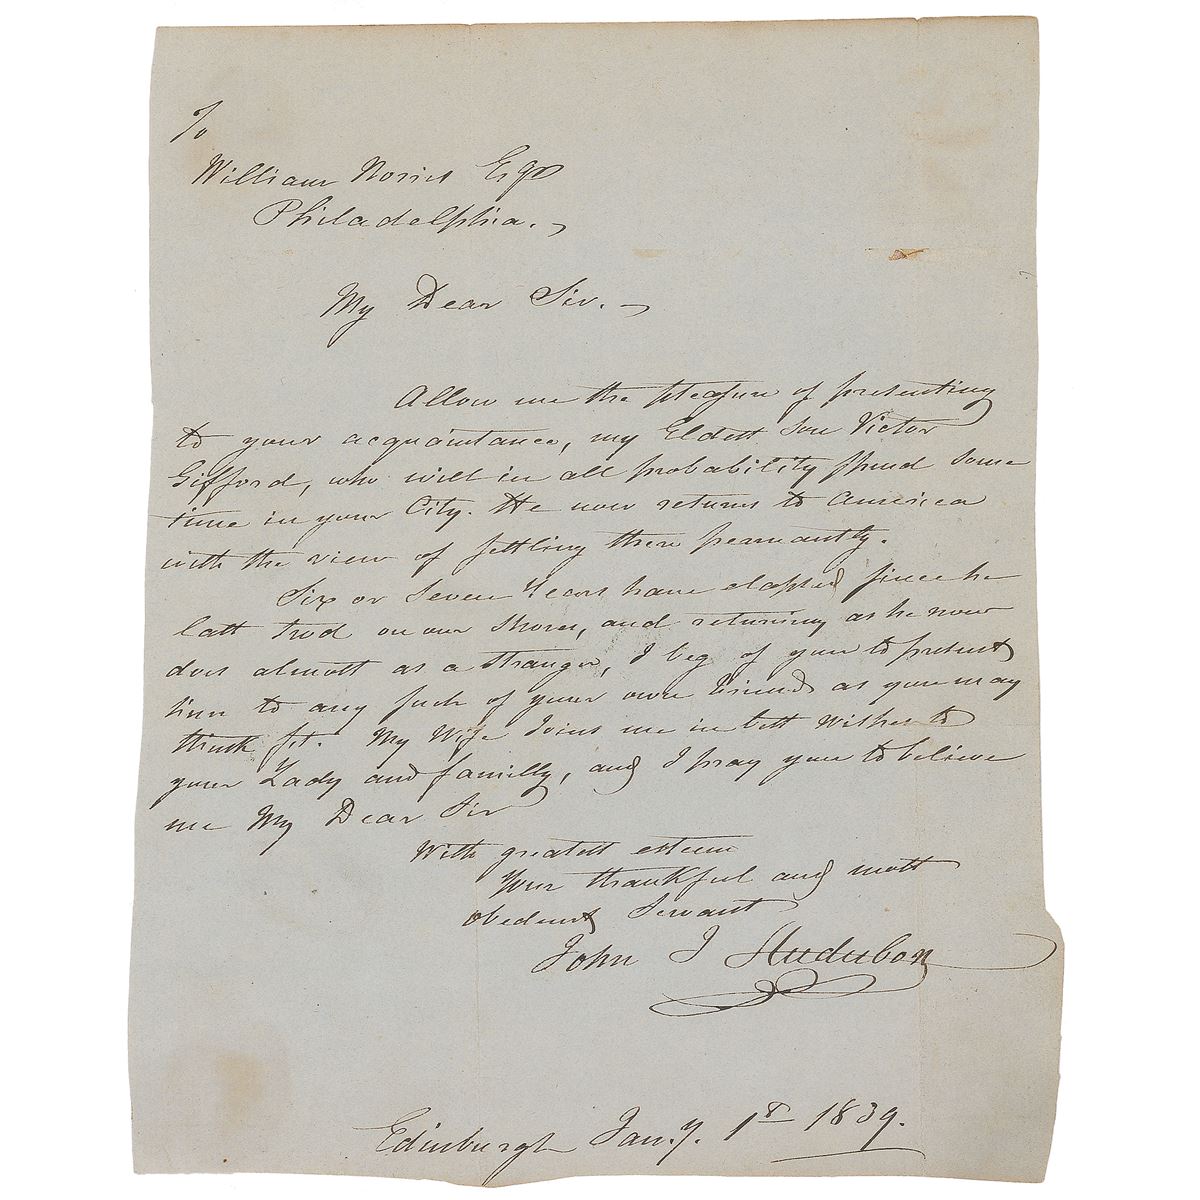 To
William Norris Esqr
Philadelphia.
My Dear Sir.
Allow me the pleasure of presenting
to your acquaintance, my Eldest Son Victor
Gifford, who will in all probability spend some
time in your City. He now returns to America
with the view of settling there
Six or Seven Years have elapsed since he
last trod on our Shores, and returning as he now
does almost as a stranger, I beg of you to present
him to any such of your own friends as you may
think fit. My Wife Joins me in best wishes to
your Lady and familly, and I pray you to believe
me My Dear Sir
With greatest esteem
Your thankful and most
obedient Servant
John J Audubon
Edinburgh Jan.y. 1st 1839.